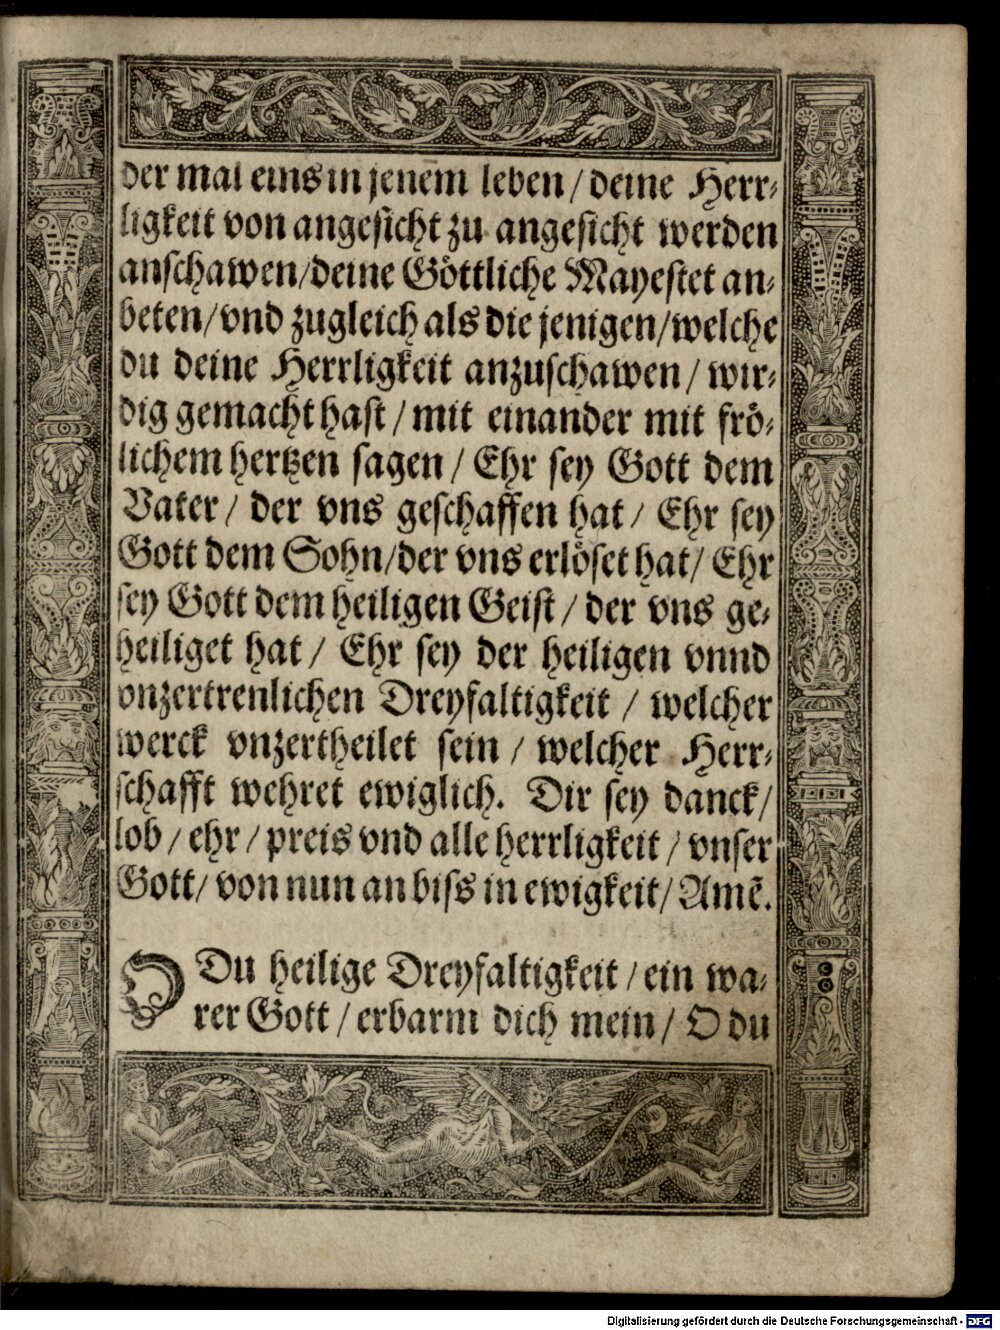 der mal eins in jenem leben / deine Herr⸗
ligkeit von angesicht zu angesicht werden
anschawen/deine Göttliche Mayestet an⸗
beten/vnd zugleich als die jenigen/welche
du deine Herrligkeit anzuschawen / wir⸗
dig gemacht hast / mit einander mit frö⸗
lichem hertzen sagen / Ehr sey Gott dem
Vater / der vns geschaffen hat / Ehr sey
Gott dem Sohn/der vns erlöset hat/ Ehr
sey Gott dem heiligen Geist / der vns ge⸗
heiliget hat / Ehr sey der heiligen vnnd
vnzertrenlichen Dreyfaltigkeit / welcher
werck vnzertheilet sein / welcher Herr⸗
schafft wehret ewiglich. Dir sey danck/
lob / ehr / preis vnd alle herrligkeit / vnser
Gott/ von nun an biss in ewigkeit/ Amẽ.
O Du heilige Dreyfaltigkeit / ein wa⸗
rer Gott / erbarm dich mein / O du
Digitalisierung gefördert durch die Deutsche Forschungsgemeinschaft - DFG